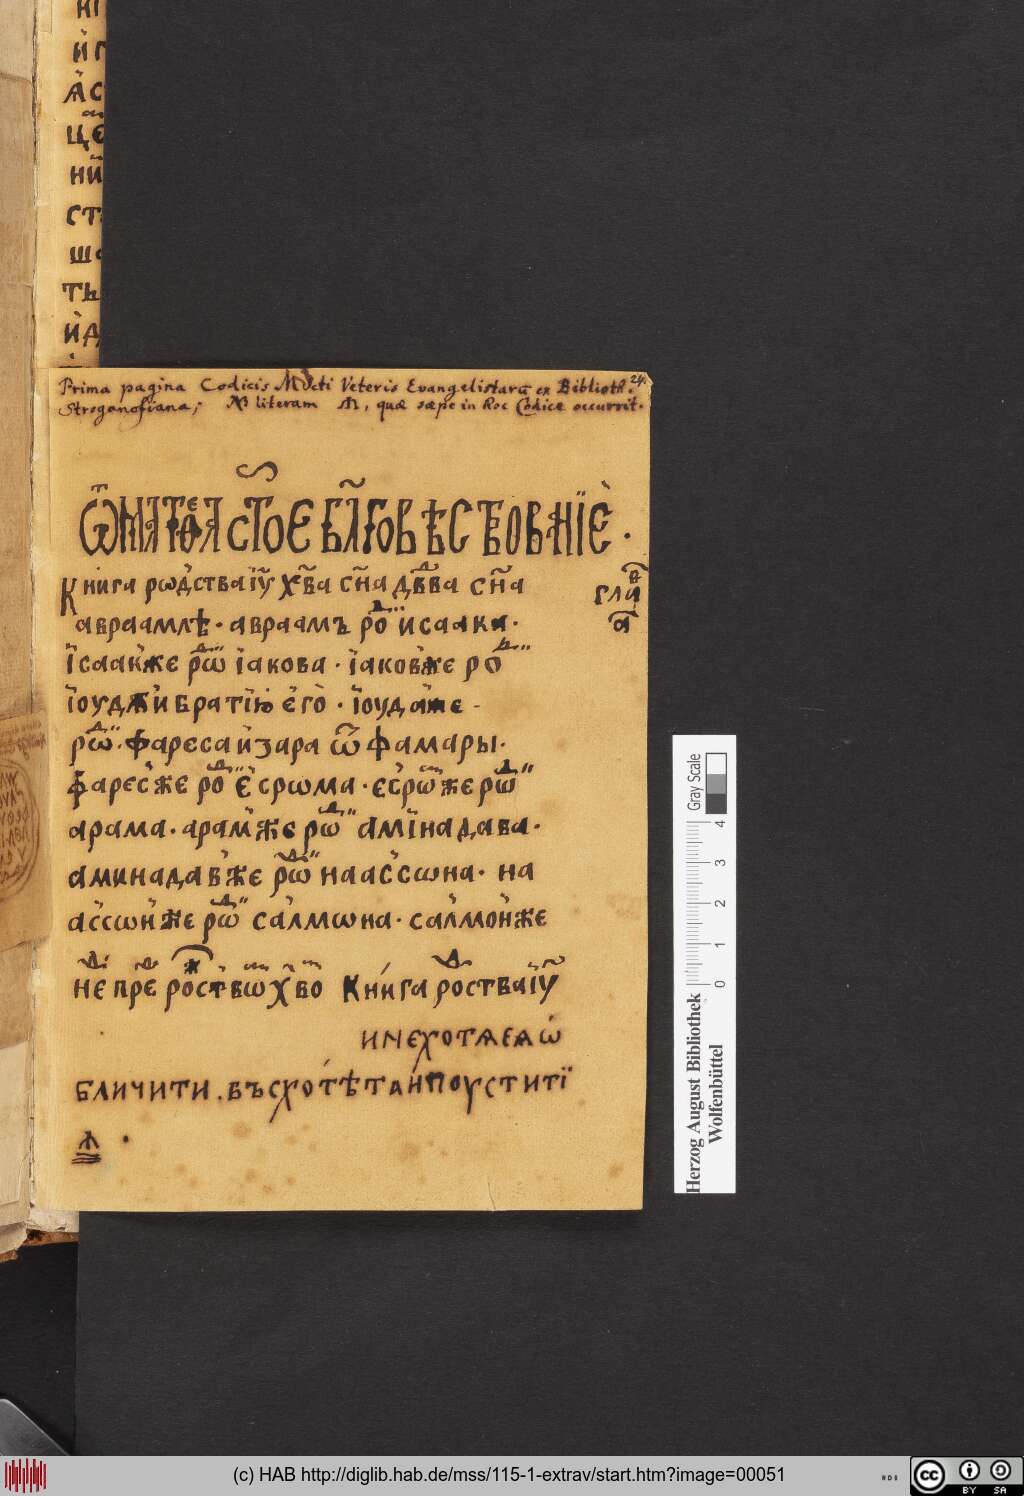 24.
Prima pagina Codicis Mscti Veteris Evangelistarũ ex Biblioth.
Strogonofiana; NB literam Ѫ, quæ sæpe in hoc Codice occurrit.
Ѿ матѳеꙗ ст҃ое бл҃говѣствовнїѐ .
Книга рѡдⷭ҇тва і҆ѵ҃ х҃ва сн҃а дв҃ва сн҃а
глаⷡ҇
а҃
авраамлѣ · авраамъ роⷣ и҆саака ·
їсаакже рѡⷣ їакова · їаковже роⷣ
їоудѫ и братїю е҆го̀ · їоудаже
рѡⷣ · фареса и҆ зара ѿ фамары ·
фаресже роⷣ есрома · есрѡмже рѡⷣ
арама · арамже рѡⷣ амїнадава ·
аминадавже рѡⷣ наассѡна · на
ассѡнже рѡⷣ салмѡна · салмонже
неⷣ преⷣ роⷤствѡⷨ х҃во книга роⷣства і҆ѵ҃
и не хотѧ еѧ ѡ
бличити . въсхотѣ таи поустити
Ѫ .
Herzog August Bibliothek
Wolfenbüttel
0 1 2 3 4
Gray Scale
(c) HAB http://diglib.hab.de/mss/115-1-extrav/start.htm?image=00051
cc BY SA